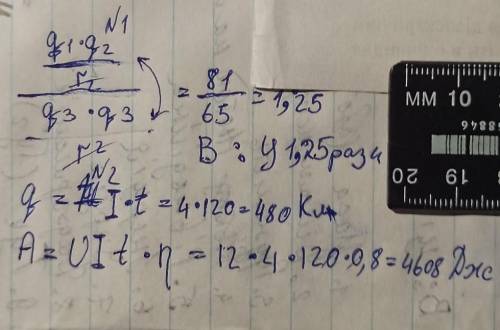 №1
q1·q2
r2
q3·q3
r2
= 81/65 = 1,25
В: У 1,25 рази
№2
q = I·t = 4·120 = 480 Кл
A = UIt·η = 12·4·120·0,8 = 4608 Дж
MM 10
58846
20 19